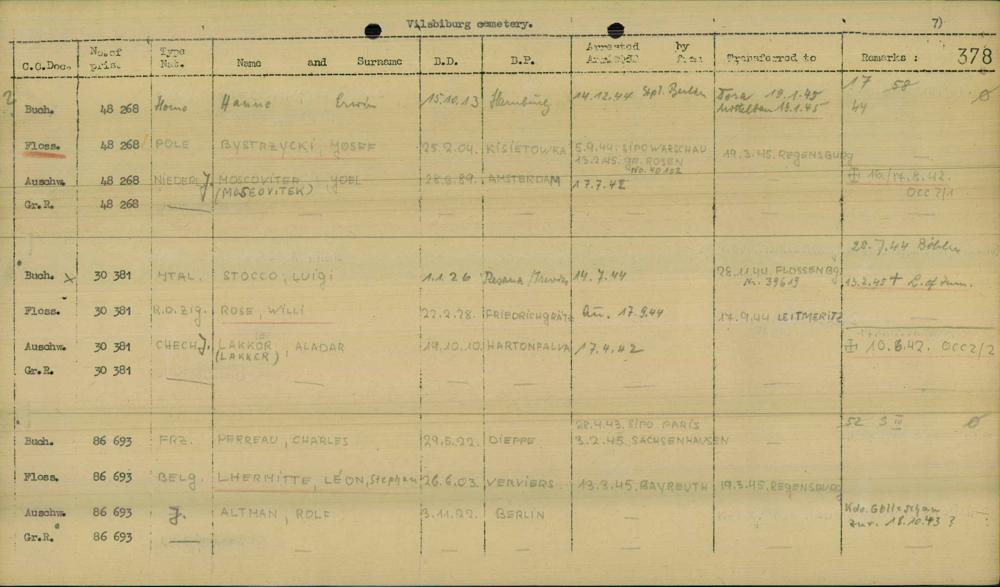 Vilsbiburg cemetery. 7)
C.C.Doc. No.of pris. Type Nat. Name and Surname B.D. B.P. Arrested by Transferred to Remarks : 378
17 58
Buch. 48 268 Homo Hanne Erwin 15.10.13 Sternburg 14.12.44 Stpl. Berlin Dora 19.1.45 44
Mittelbau 19.1.45
Floss. 48 268 POLE BYSTRZYCKI, YOSEF 25.2.04. KISIETOWKA 5.9.44. SIPO WARSCHAU 19.3.45. REGENSBURG —
13.2.45. GR. ROSEN
No. 40102
Auschw. 48 268 NIEDERL J. MOSCOVITER, YOEL 28.8.89. AMSTERDAM 17.7.42 — 16./17.8.42.
(MOSCOVITEK) OCC 2/1
Gr.R. 48 268 — — — — — —
28.7.44 Böhlen
Buch. x 30 381 YTAL. STOCCO, LUIGI 1.1.26 Resana/Treviso 14.7.44 28.11.44. FLOSSENBG. 13.2.45 +
Nr. 39619
Floss. 30 381 R.D. Zig. ROSE, WILLI 22.2.28. FRIEDRICHGRÄTZ Au. 17.9.44 17.9.44 LEITMERITZ —
Auschw. 30 381 CHECH J. LAKKOR, ALADAR 19.10.10. HARTONFALVA 17.4.42 — 10.6.42. OCC 2/2
(LAKKER)
Gr.R. 30 381 — — — — — —
28.4.43. SIPO PARIS 52 3 III
Buch. 86 693 FRZ. PERREAU, CHARLES 29.5.22. DIEPPE 3.2.45. SACHSENHAUSEN —
Floss. 86 693 BELG. LHERMITTE, LÉON, Stephan 26.6.03. VERVIERS 13.3.45. BAYREUTH 19.3.45. REGENSBURG —
Auschw. 86 693 J. ALTMAN, ROLF 3.11.22. BERLIN — — Kdo. Golleschau
zur. 18.10.43 ?
Gr.R. 86 693 — — — — — —